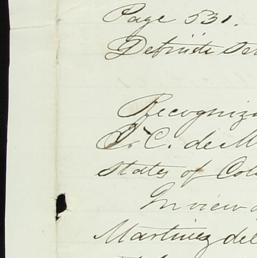 Page 531.
Definite
Recogniz
J. C. de M
States of Col
In view
Martinez del